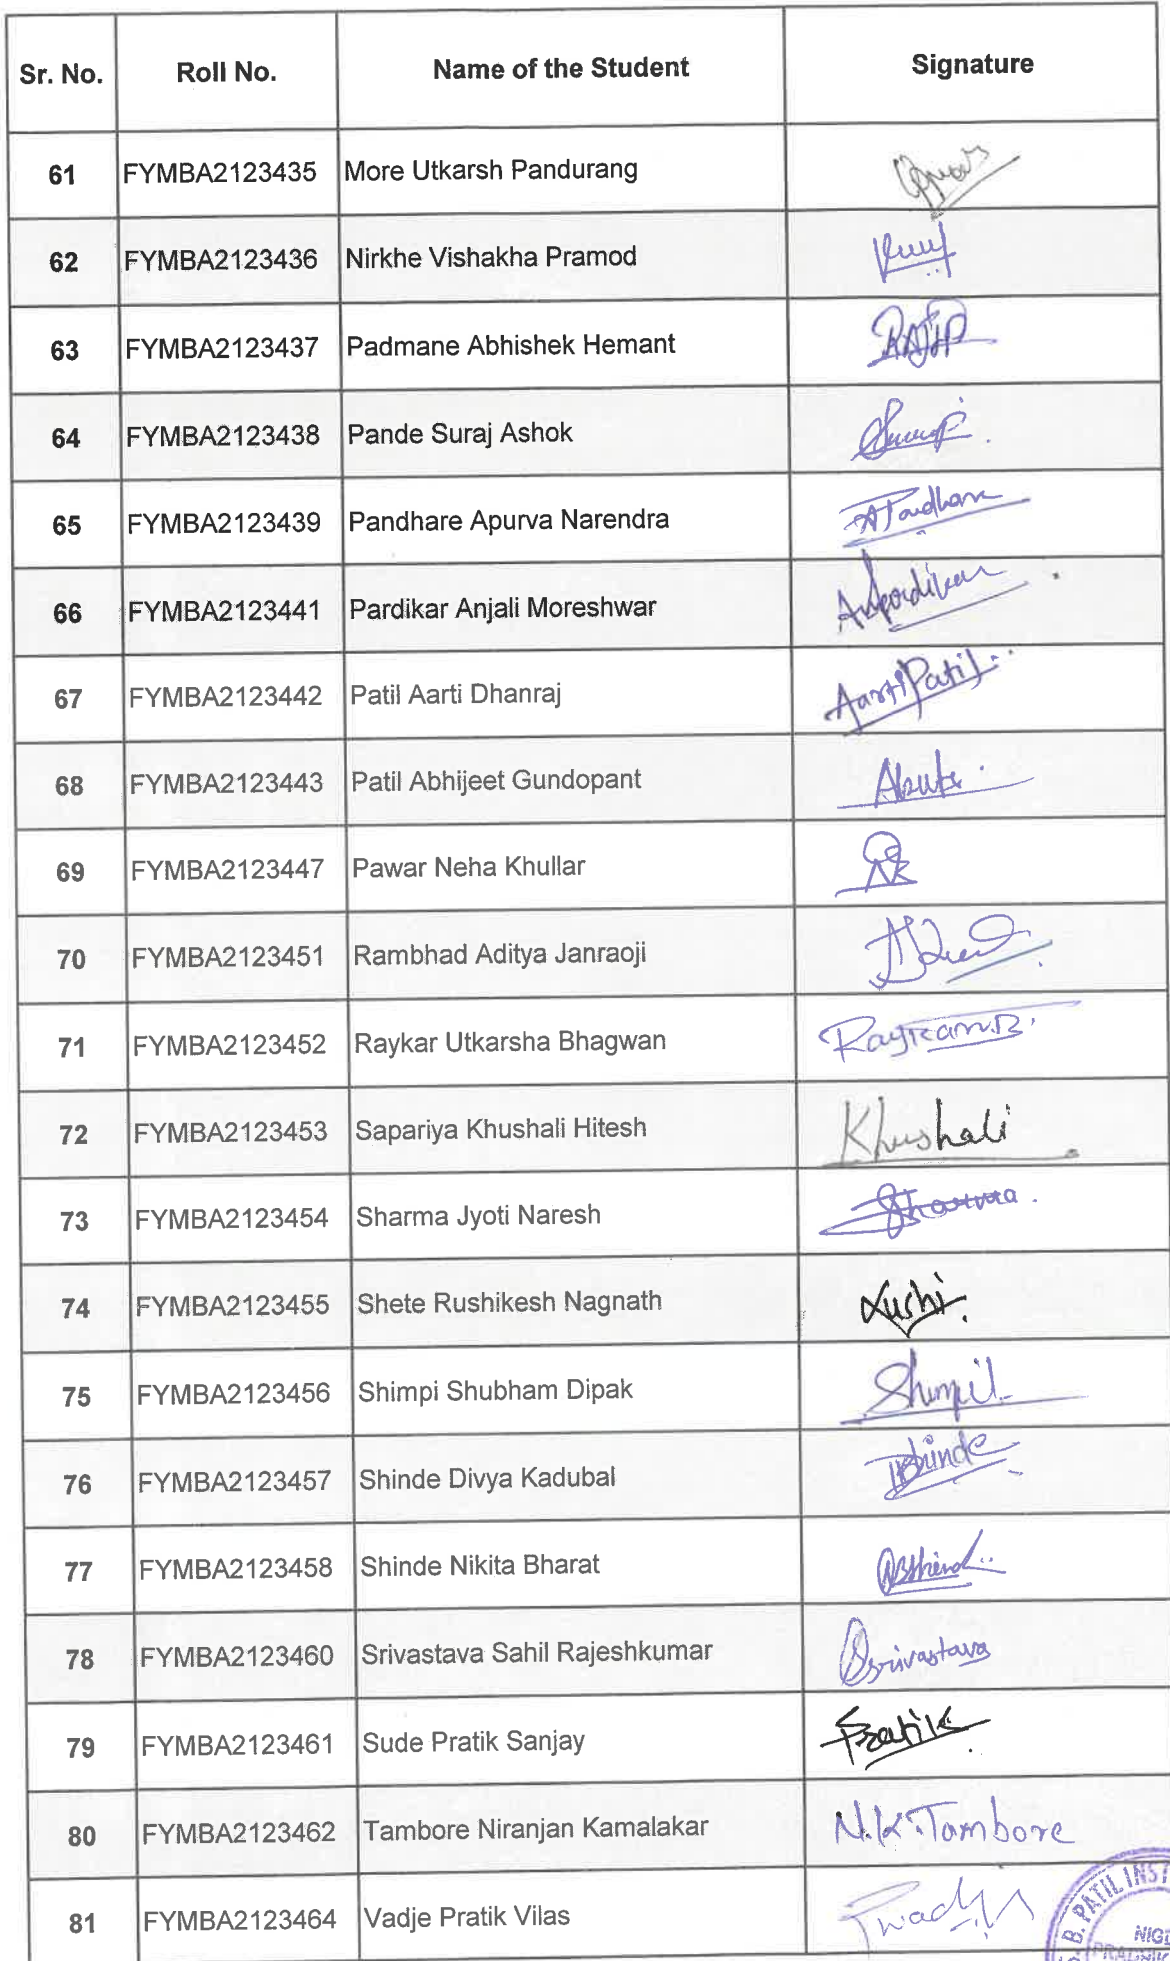 Sr. No. Roll No. Name of the Student Signature
61 FYMBA2123435 More Utkarsh Pandurang
62 FYMBA2123436 Nirkhe Vishakha Pramod
63 FYMBA2123437 Padmane Abhishek Hemant
64 FYMBA2123438 Pande Suraj Ashok
65 FYMBA2123439 Pandhare Apurva Narendra
66 FYMBA2123441 Pardikar Anjali Moreshwar
67 FYMBA2123442 Patil Aarti Dhanraj AartiPatil
68 FYMBA2123443 Patil Abhijeet Gundopant
69 FYMBA2123447 Pawar Neha Khullar
70 FYMBA2123451 Rambhad Aditya Janraoji
71 FYMBA2123452 Raykar Utkarsha Bhagwan
72 FYMBA2123453 Sapariya Khushali Hitesh Khushali
73 FYMBA2123454 Sharma Jyoti Naresh
74 FYMBA2123455 Shete Rushikesh Nagnath
75 FYMBA2123456 Shimpi Shubham Dipak
76 FYMBA2123457 Shinde Divya Kadubal
77 FYMBA2123458 Shinde Nikita Bharat
78 FYMBA2123460 Srivastava Sahil Rajeshkumar Srivastava
79 FYMBA2123461 Sude Pratik Sanjay Pratik
80 FYMBA2123462 Tambore Niranjan Kamalakar N.K.Tambore
81 FYMBA2123464 Vadje Pratik Vilas
B. PATIL INST
NIGD
PRADHIK